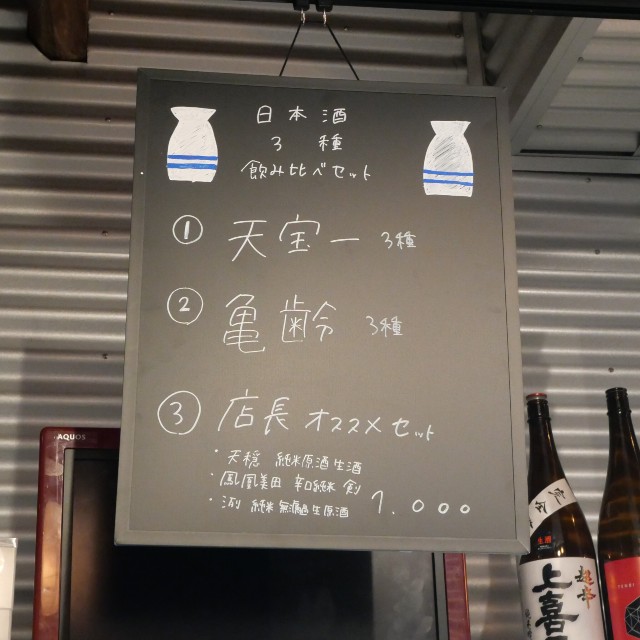 日本酒
3 種
飲み比べセット
① 天宝一 3種
② 亀齢 3種
③ 店長オススメセット
・天穏 純米原酒生酒
・鳳凰美田 辛口純米 剱
・洌 純米無濾過生原酒
1.000
AQUOS
超辛
上喜